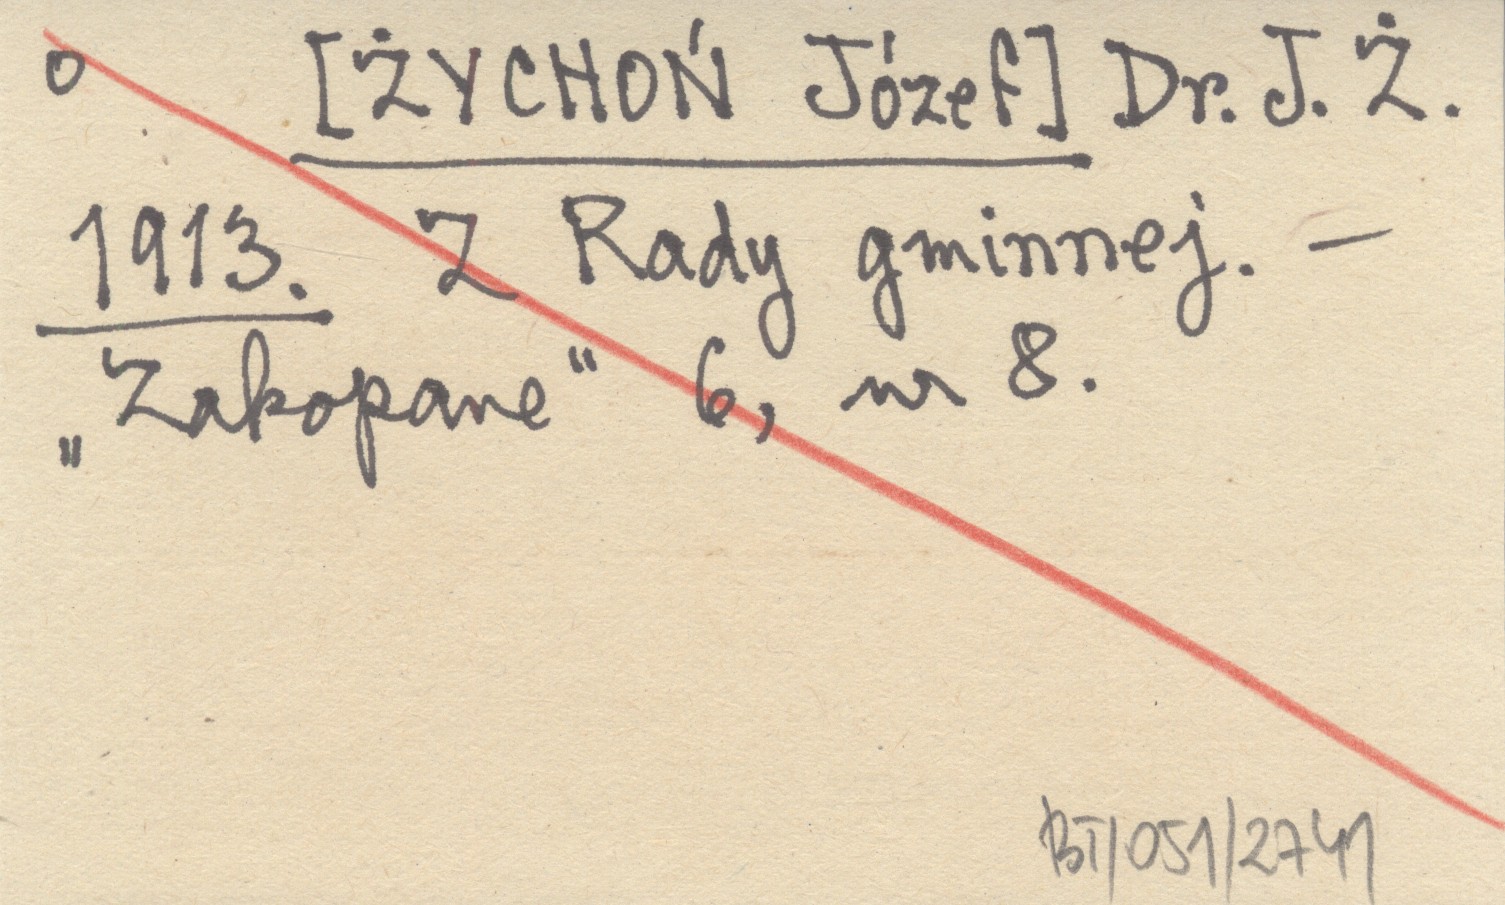 o [ŻYCHOŃ Józef] Dr. J. Ż.
1913. Z Rady gminnej. —
„Zakopane“ 6, nr 8.
BT/051/2741